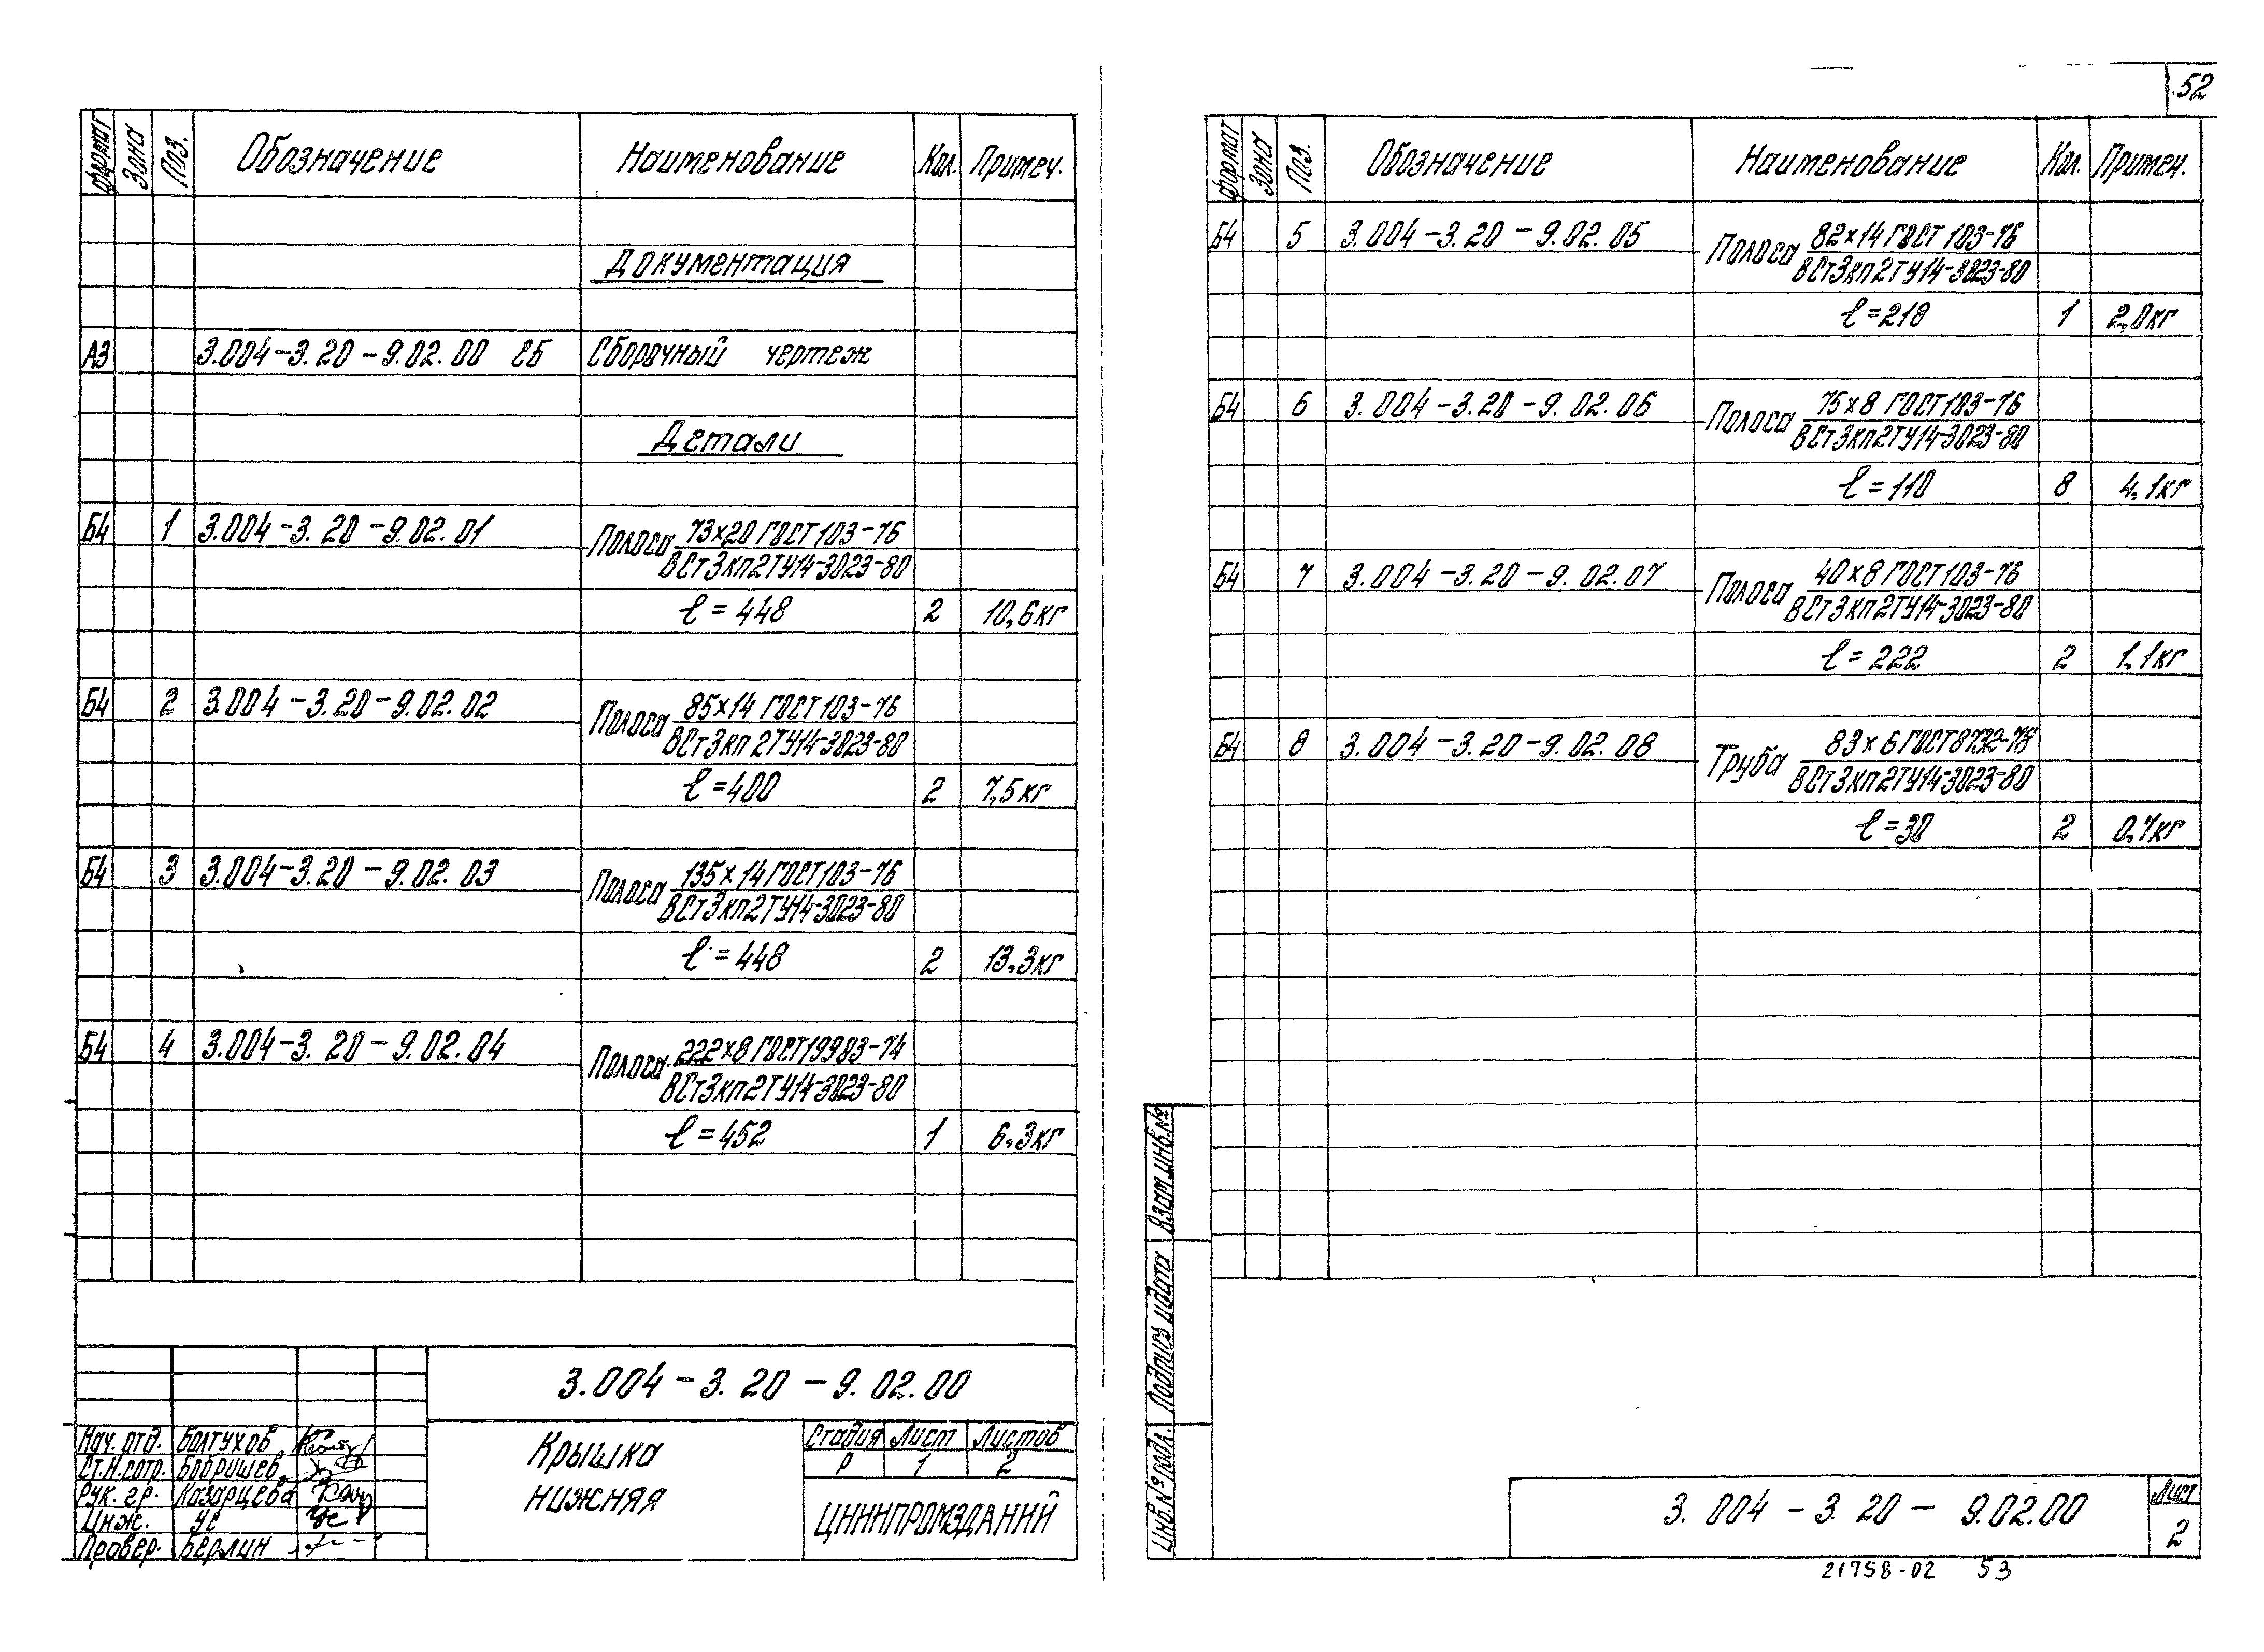 52
Формат Зона Поз. Обозначение Наименование Кол. Примеч.
Документация
А3 3.004-3.20-9.02.00 СБ Сборочный чертеж
Детали
Б4 1 3.004-3.20-9.02.01 Полоса 73×20 ГОСТ 103-76
ВСт3кп2ТУ14-3023-80
ℓ=448 2 10,6кг
Б4 2 3.004-3.20-9.02.02 Полоса 85×14 ГОСТ 103-76
ВСт3кп2ТУ14-3023-80
ℓ=400 2 7,5кг
Б4 3 3.004-3.20-9.02.03 Полоса 135×14 ГОСТ 103-76
ВСт3кп2ТУ14-3023-80
ℓ=448 2 13,3кг
Б4 4 3.004-3.20-9.02.04 Полоса 222×8 ГОСТ 19903-74
ВСт3кп2ТУ14-3023-80
ℓ=452 1 6,3кг
3.004-3.20-9.02.00
Нач. отд. Болтухов
Ст.н.сотр. Бобришев
Рук. гр. Казарцева
Инж. Ус
Провер. Берлин
Крышка
нижняя
Стадия Лист Листов
Р 1 2
ЦНИИПРОМЗДАНИЙ
Формат Зона Поз. Обозначение Наименование Кол. Примеч.
Б4 5 3.004-3.20-9.02.05 Полоса 82×14 ГОСТ 103-76
ВСт3кп2ТУ14-3023-80
ℓ=218 1 2,0кг
Б4 6 3.004-3.20-9.02.06 Полоса 75×8 ГОСТ 103-76
ВСт3кп2ТУ14-3023-80
ℓ=110 8 4,1кг
Б4 7 3.004-3.20-9.02.07 Полоса 40×8 ГОСТ 103-76
ВСт3кп2ТУ14-3023-80
ℓ=222 2 1,1кг
Б4 8 3.004-3.20-9.02.08 Труба 83×6 ГОСТ 8732-78
ВСт3кп2ТУ14-3023-80
ℓ=30 2 0,7кг
Взам. инв.№
Подпись и дата
Инв.№ подл.
3.004-3.20-9.02.00
Лист
2
21758-02 53